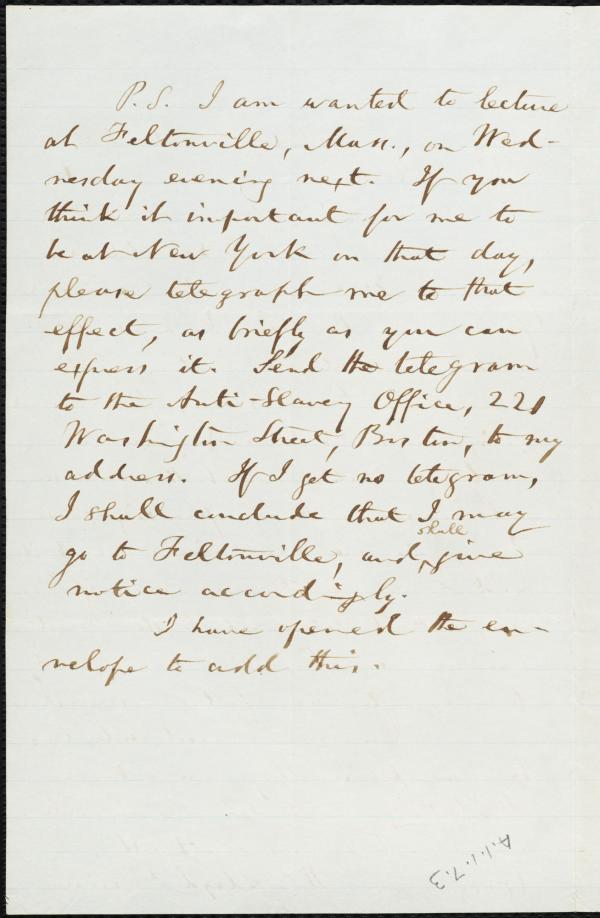 P.S. I am wanted to lecture
at Feltonville, Mass., on Wed-
nesday evening next. If you
think it important for me to
be at New York on that day,
please telegraph me to that
effect, as briefly as you can
express it. Send the telegram
to the Anti-Slavery Office, 221
Washington Street, Boston, to my
address. If I get no telegram,
I shall conclude that I may
go to Feltonville, and shall give
notice accordingly.
I have opened the en-
velope to add this.
A.1.1.7.3